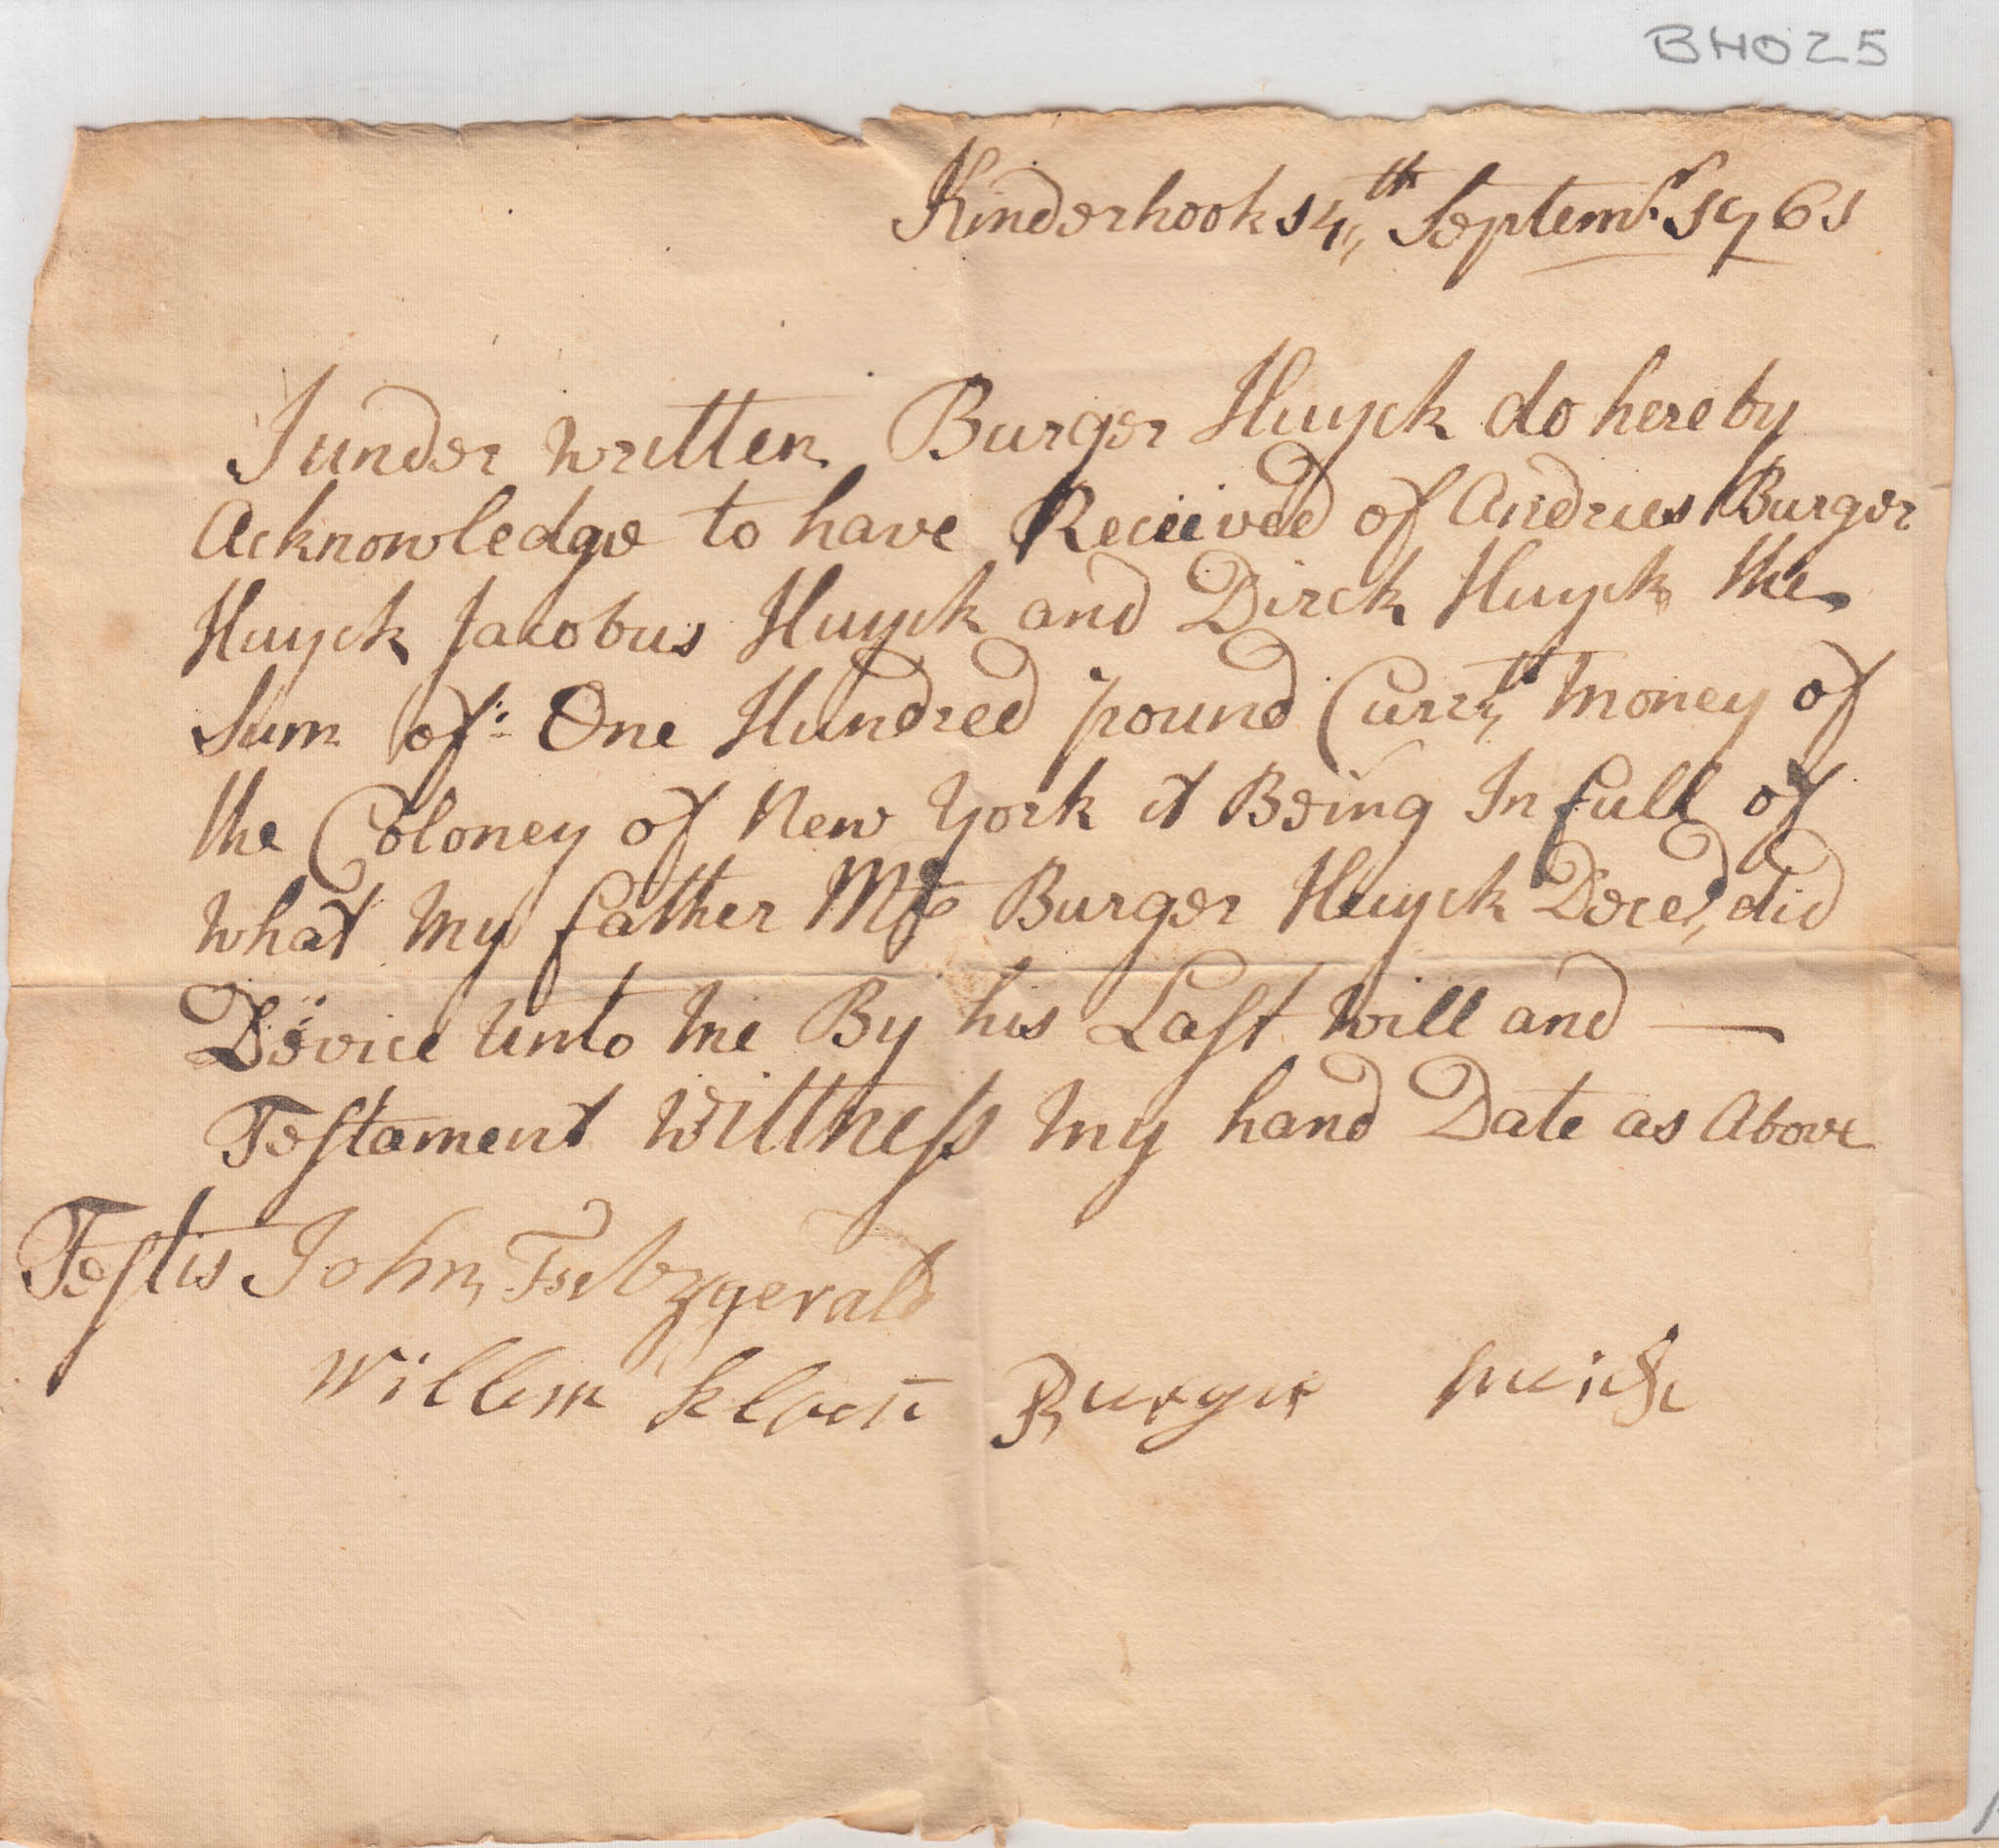 BH025
Kinderhook 14th Septembr 1761
I under written Burger Huyck do hereby
Acknowledge to have Received of Andries Burger
Huyck Jacobus Huyck and Dirck Huyck the
Sum of: One Hundred pound Currtt Money of
the Coloney of New York it Being In full of
What My father Mr Burger Huyck Deced did
Device Unto Me By his Last Will and —
Testament Wittness My hand Date as Above
Testis John Fitzgerald
Willem
Burger Huick